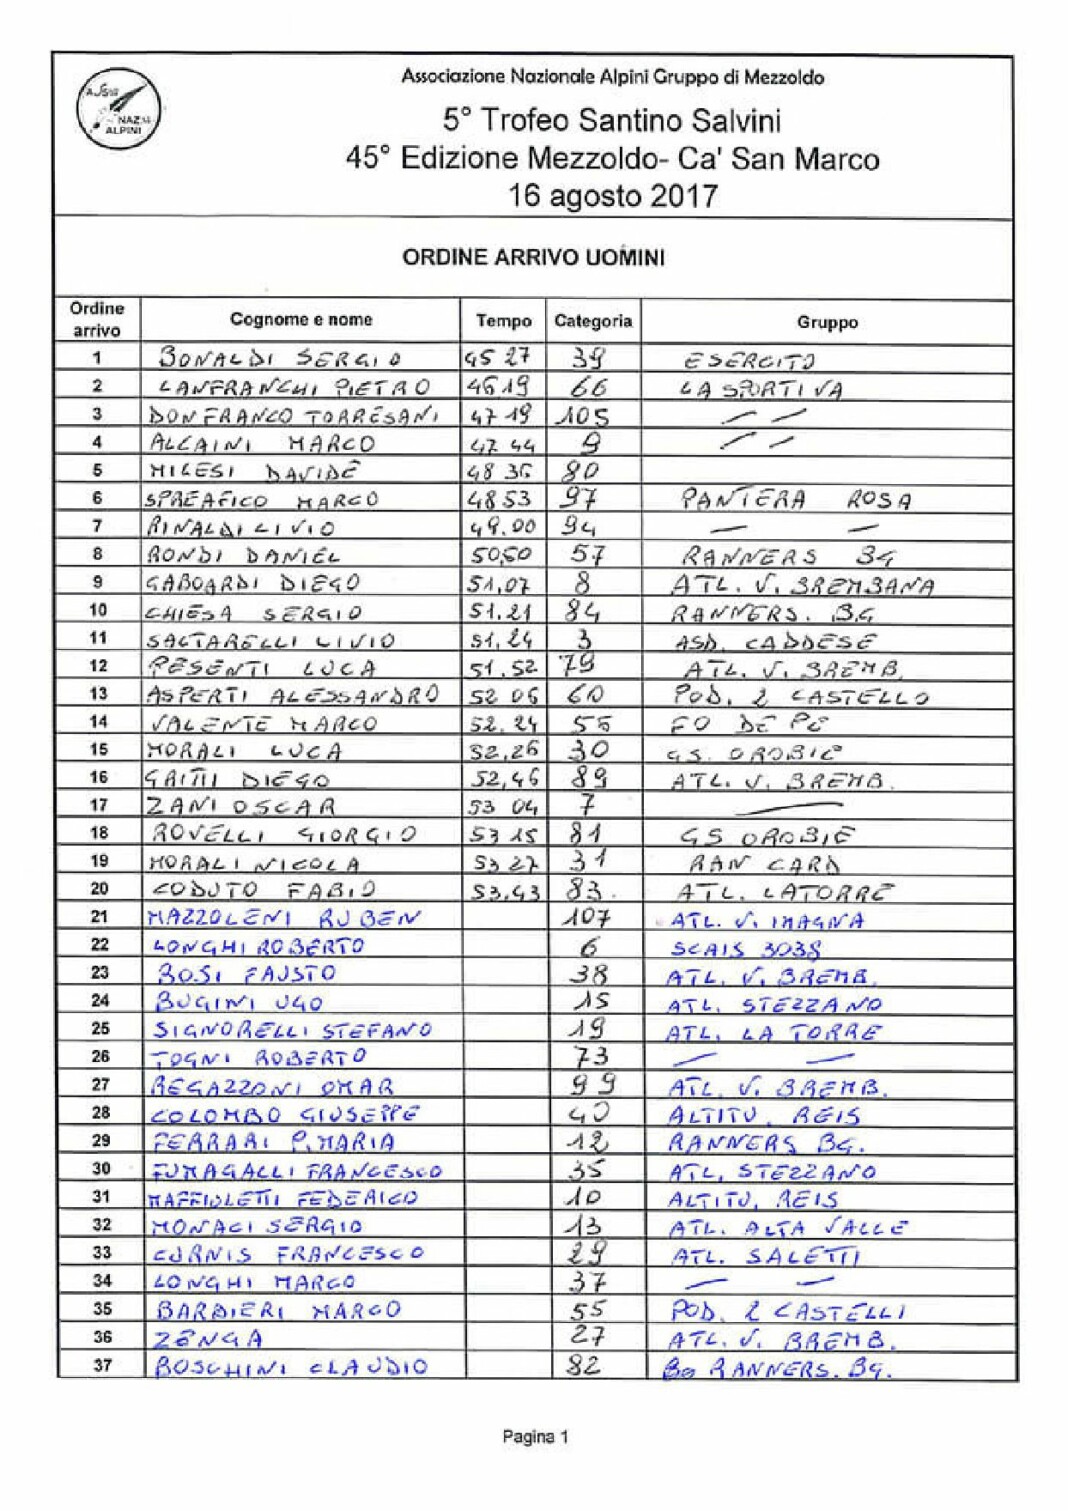 NAZ.
ALPINI
Associazione Nazionale Alpini Gruppo di Mezzoldo
5° Trofeo Santino Salvini
45° Edizione Mezzoldo- Ca' San Marco
16 agosto 2017
ORDINE ARRIVO UOMINI
Ordine arrivo Cognome e nome Tempo Categoria Gruppo
1 BONALDI SERGIO 45 27 39 ESERCITO
2 LANFRANCHI PIETRO 46 19 66 LA SPORTIVA
3 DONFRANCO TORRESANI 47 19 105 — —
4 ALCAINI MARCO 47 44 9 — —
5 MILESI DAVIDE 48 36 80
6 SPREAFICO MARCO 48 53 97 PANTERA ROSA
7 RINALDI LIVIO 49.00 94 — —
8 RONDI DANIEL 50,50 57 RANNERS BG
9 GABOARDI DIEGO 51,07 8 ATL. V. BREMBANA
10 CHIESA SERGIO 51.21 84 RANNERS. BG
11 SALTARELLI LIVIO 51,24 3 ASD. CADDESE
12 PESENTI LUCA 51.52 79 ATL. V. BREMB.
13 ASPERTI ALESSANDRO 52 06 60 POD. 2 CASTELLO
14 VALENTE MARCO 52.24 56 FO DE PE
15 MORALI LUCA 52,26 30 GS. OROBIE
16 GAITTI DIEGO 52,46 89 ATL. V. BREMB.
17 ZANI OSCAR 53 04 7 —
18 ROVELLI GIORGIO 53 15 81 GS OROBIE
19 MORALI NICOLA 53 27 31 RAN CARD
20 CODUTO FABIO 53,43 83. ATL. LATORRE
21 MAZZOLENI RUBEN 107 ATL. V. IMAGNA
22 LONGHI ROBERTO 6 SCAIS 3038
23 BOSI FAUSTO 38 ATL. V. BREMB.
24 BUGINI UGO 15 ATL. STEZZANO
25 SIGNORELLI STEFANO 19 ATL. LA TORRE
26 TOGNI ROBERTO 73 — —
27 REGAZZONI OMAR 99 ATL. V. BREMB.
28 COLOMBO GIUSEPPE 40 ALTITU. REIS
29 FERRARI P. MARIA 12 RANNERS BG.
30 FUMAGALLI FRANCESCO 35 ATL, STEZZANO
31 MAFFIOLETTI FEDERICO 10 ALTITU, REIS
32 MONACI SERGIO 13 ATL. ALTA VALLE
33 CURNIS FRANCESCO 29 ATL. SALETTI
34 LONGHI MARCO 37 — —
35 BARBIERI MARCO 55 POD. 2 CASTELLI
36 ZENGA 27 ATL. V. BREMB.
37 BOSCHINI CLAUDIO 82 BG RANNERS. BG.
Pagina 1